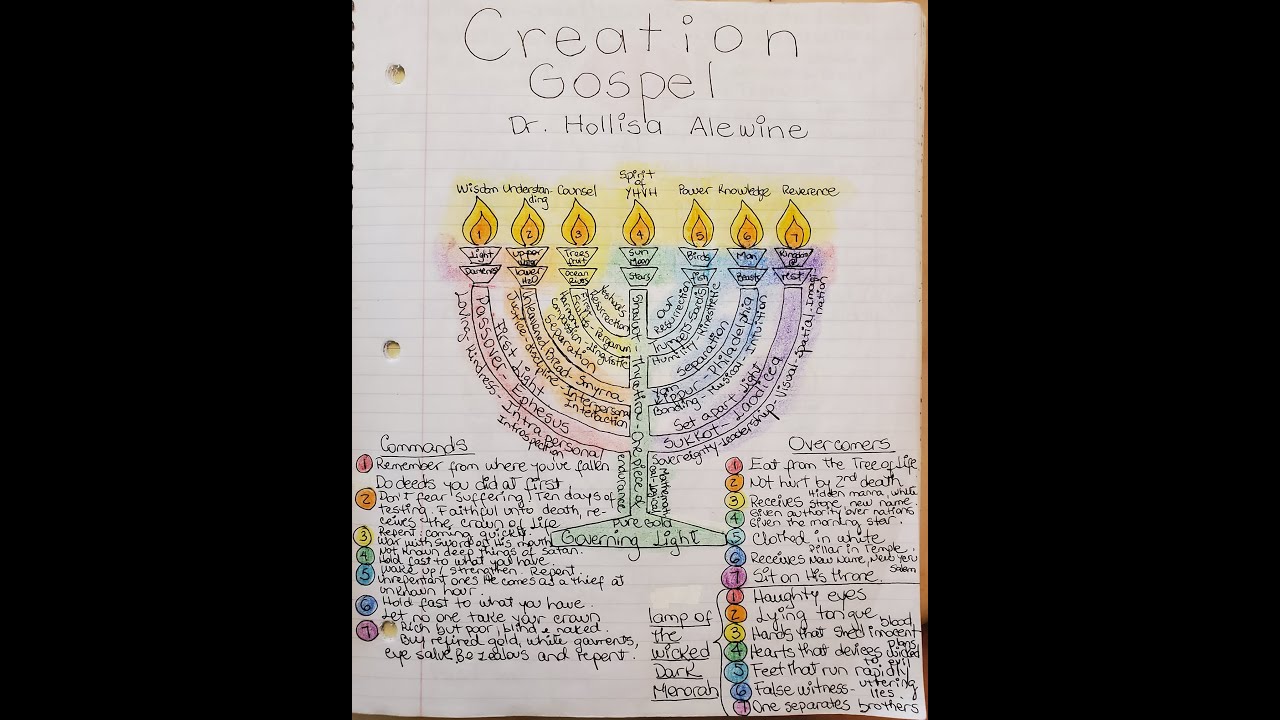 Creation
Gospel
Dr. Hollisa Alewine
Wisdom Understan- Counsel Spirit of YHVH Power Knowledge Reverence
ding
1 2 3 4 5 6 7
Light Upper Trees Sun Birds Man Kingdom
fruit Moon
Darkness Lower Ocean Stars Fish Beasts rest
H2O Rivers
Passover - Ephesus
First Light
Loving-Kindness - Intrapersonal
Introspection
Unleavened Bread - Smyrna
Separation
Justice-discipline - Interpersonal
Interaction
Yeshua's
Resurrection
First Fruits - Pergamum
Compassion - Linguistic
Shavuot - Thyatira - One piece of
pure gold
endurance
Mathematical
Our
Resurrection
Trumpets - Sardis
Humility Kinesthetic
Separation
Yom Kippur - Philadelphia
Bonding - Musical - Intuition
Set apart Light
Sukkot - Laodicea
Sovereignty-Leadership - Visual-Spatial-Imagi
nation
Governing Light
Commands
1 Remember from where you've fallen
Do deeds you did at first
2 Don't fear suffering! Ten days of
testing. Faithful unto death, re-
ceives the crown of life
3 Repent: coming quickly
War with sword of His mouth
4 Not known deep things of Satan.
Hold fast to what you have.
5 Wake up/strengthen. Repent.
Unrepentant ones He comes as a thief at
unknown hour.
6 Hold fast to what you have.
Let no one take your crown
7 Rich but poor, blind & naked.
Buy refined gold, white garments,
eye salve. Be zealous and repent.
Overcomers
1 Eat from the Tree of Life
2 Not hurt by 2nd death
3 Receives Hidden manna, white
stone, new name.
4 Given authority over nations
Given the morning star.
5 Clothed in white
6 Receives Pillar in Temple,
New Name, New Yeru
salem
7 Sit on His throne.
lamp of
the
wicked
Dark
Menorah
1 Haughty eyes
2 Lying tongue
3 Hands that shed innocent blood,
4 Hearts that devices wicked plans
5 Feet that run rapidly to evil
6 False witness - uttering lies.
7 One separates brothers